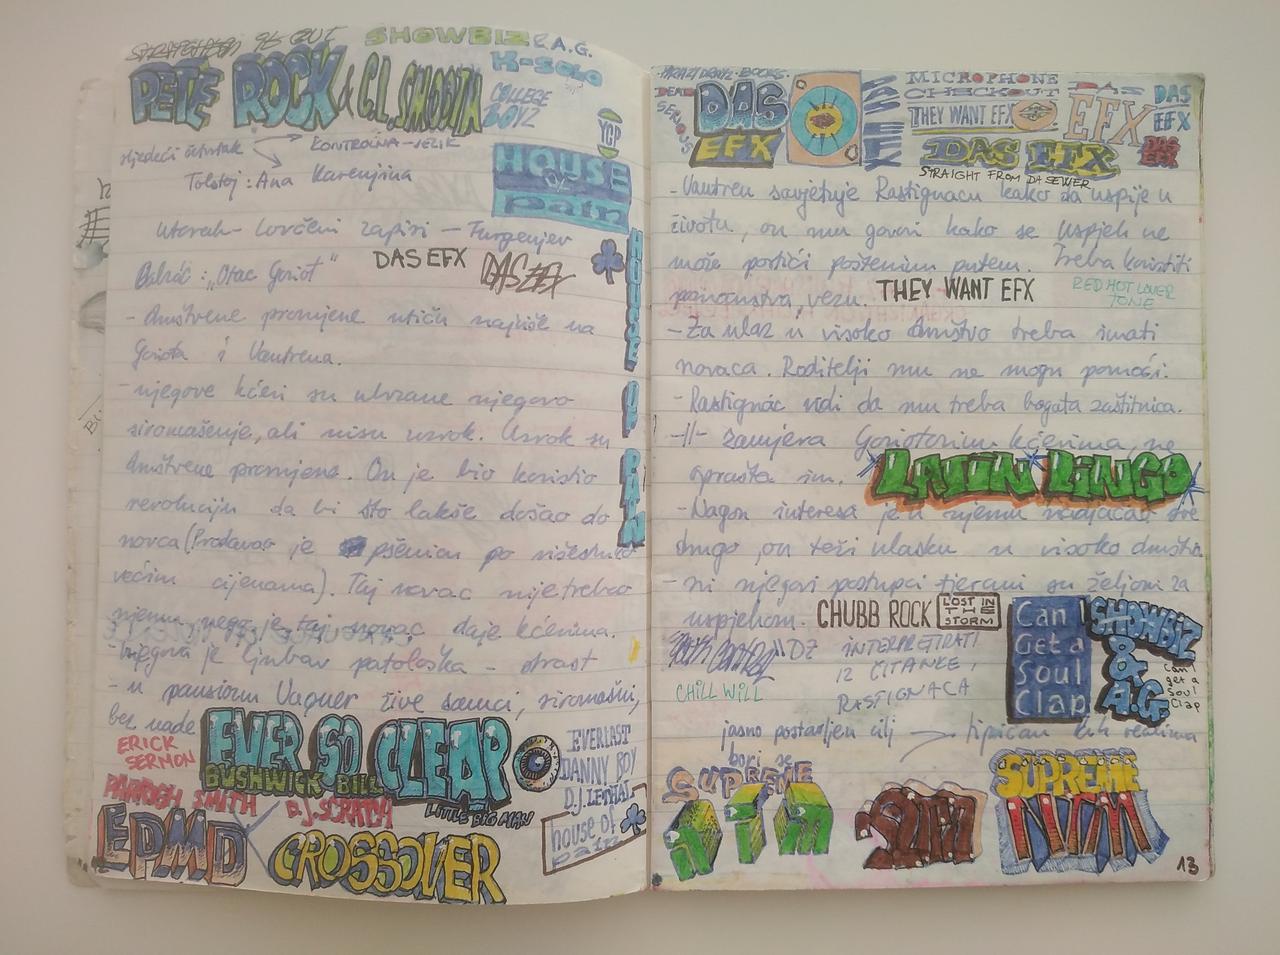 SHOWBIZ & A.G.
PETE ROCK & C.L. SMOOTH
K-SOLO
COLLEGE BOYZ
YGP
sljedeći četvrtak
KONTROLNA-JEZIK
Tolstoj: Ana Karenjina
HOUSE OF pain
utorak- Lovčevi zapisi - Turgenjev
Balzac: „Otac Goriot"
DAS EFX
DAS EFX
- društvene promjene utiču najviše na
Goriota i Vautrena.
HOUSE OF PAIN
- njegove kćeri su ubrzane njegovo
siromašenje, ali nisu uzrok. Uzrok su
društvene promjene. On je bio koristio
revoluciju da bi što lakše došao do
novca (Prodavao je pšenicu po višestruko
većim cijenama). Taj novac nije trebao
njemu, nego je taj novac daje kćerima.
- Njegova je ljubav patološka - strast
- u pansionu Vaquer žive samci, siromašni,
bez nade
ERICK SERMON
EVER SO CLEAR
BUSHWICK BILL
LITTLE BIG MAN
EVERLAST
DANNY BOY
D.J. LETHAL
house of pain
PARRISH SMITH
D.J. SCRATCH
EPMD
CROSSOVER
DEAD SERIOUS
DAS EFX
MICROPHONE CHECKOUT
THEY WANT EFX
DAS EFX
STRAIGHT FROM DA SEWER
DAS EFX
DAS EFX
DAS EFX
- Vautren savjetuje Rastignacu kako da uspije u
životu, on mu govori kako se uspjeh ne
može postići poštenim putem. Treba koristiti
poznanstva, vezu.
THEY WANT EFX
RED HOT LOVER TONE
- Za ulaz u visoko društvo treba imati
novaca. Roditelji mu ne mogu pomoći.
- Rastignac vidi da mu treba bogata zaštitnica.
-||- zamjera Goriotovim kćerima, ne
oprašta im.
LATIN LINGO
- Nagon interesa je u njemu nadjačao sve
drugo, on teži ulasku u visoko društvo
- svi njegovi postupci tjerani su željom za
uspjehom.
CHUBB ROCK
LOST IN THE STORM
Can Get a Soul Clap
SHOWBIZ & A.G.
Can I get a Soul Clap
DZ INTERPRETIRATI
IZ ČITANKE,
RASTIGNACA
CHILL WILL
jasno postavljen cilj
tipičan lik realizma
bori se
SUPREME NTM
NTM
SUPREME NTM
13